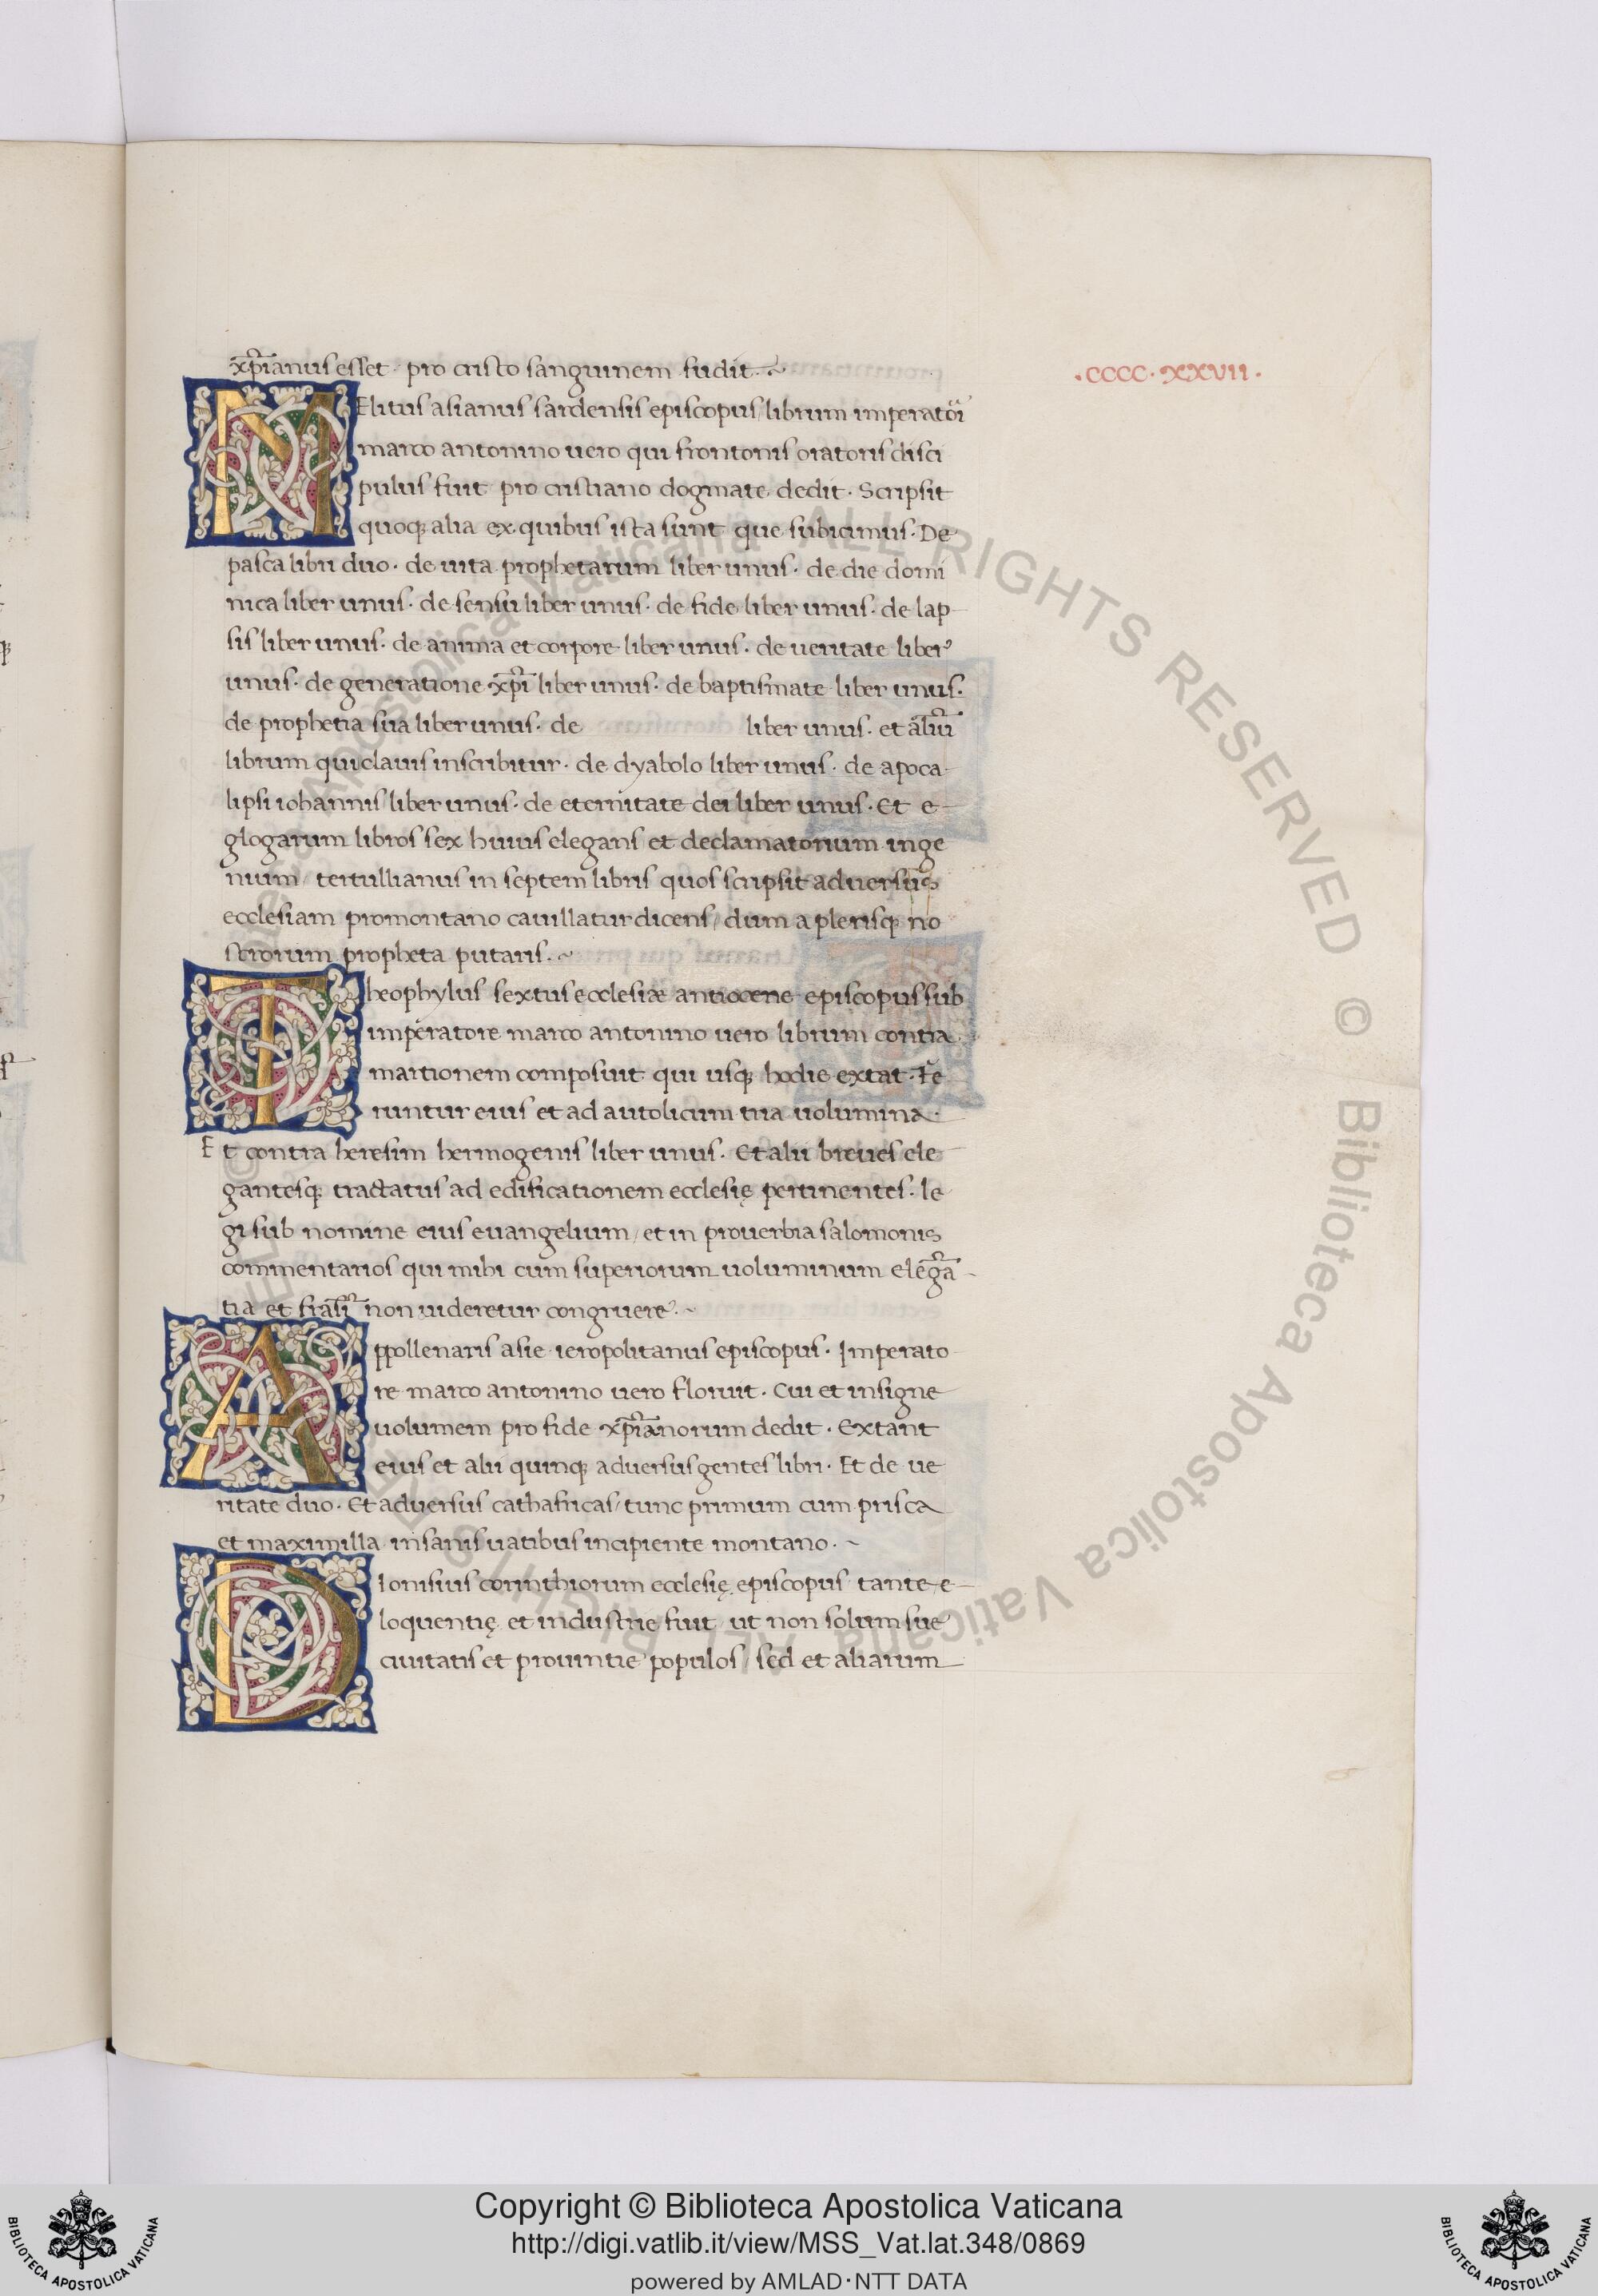 xp̄ianus esset pro cristo sanguinem fudit.
.CCCC.XXVII.
MElitus asianus sardensis episcopus/librum imperatori
marco antonino uero qui frontonis oratoris disci
pulus fuit pro cristiano dogmate dedit. Scripsit
quoq; alia ex quibus ista sunt que subicimus. De
pasca libri duo. de uita prophetarum liber unus. de die domi
nica liber unus. de sensu liber unus. de fide liber unus. de lap-
sis liber unus. de anima et corpore liber unus. de ueritate liber
unus. de generatione xp̄i liber unus. de baptismate liber unus.
de prophetia sua liber unus. de liber unus. et aliū
librum qui clauis inscribitur. de dyabolo liber unus. de apoca-
lipsi iohannis liber unus. de eternitate dei liber unus. Et e-
glogarum libros sex huius elegans et declamatorium inge
nium/tertullianus in septem libris quos scripsit aduersus
ecclesiam promontano cauillatur dicens/dum a plerisq; no
strorum propheta putaris.
Theophylus sextus ecclesiæ antiocene episcopus sub
imperatore marco antonino uero librum contra
martionem composuit qui usq; hodie extat. Fe
runtur eius et ad autolicum tria uolumina.
Et contra heresim hermogenis liber unus. Et alii breues ele
gantesq; tractatus ad edificationem ecclesię pertinentes. le
gi sub nomine eius euangelium/et in prouerbia salomonis
commentarios qui mihi cum superiorum uoluminum elegā-
tia et frāsi non uideretur congruere.
Appollenaris asie ieropolitanus episcopus. Imperato
re marco antonino uero floruit. Cui et insigne
uolumem pro fide xp̄ianorum dedit. Extant
eius et alii quinq; aduersus gentes libri. Et de ue
ritate duo. Et aduersus cathafricas/tunc primum cum prisca
et maximilla insanis uatibus incipiente montano.
Dionisius corinthiorum ecclesię episcopus tante e-
loquentię et industrie fuit ut non solum sue
ciuitatis et prouintie populos/sed et aliarum
© Biblioteca Apostolica Vaticana ALL RIGHTS RESERVED
Copyright © Biblioteca Apostolica Vaticana
http://digi.vatlib.it/view/MSS_Vat.lat.348/0869
powered by AMLAD·NTT DATA
BIBLIOTECA APOSTOLICA VATICANA
BIBLIOTECA APOSTOLICA VATICANA